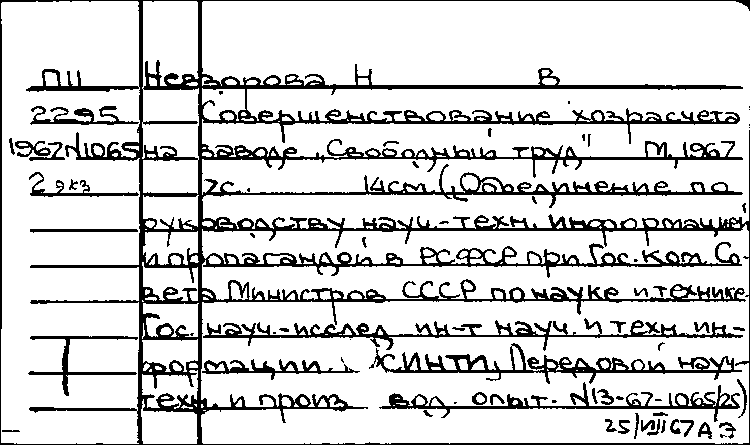 ПII Невзорова, Н В
2295 Совершенствование хозрасчета
1967N1065 на заводе „Свободный труд" М, 1967
2 экз 7с. 14см. (Объединение по
руководству науч.-техн. информацией
и пропагандой в РСФСР при Гос. ком. Со-
вета Министров СССР по науке и технике
Гос. науч.-исслед. ин-т науч. и техн. ин-
формации. Передовой науч-
техн. и произ вод. опыт. N13-67-1065/25)
25/VIII 67 А Э